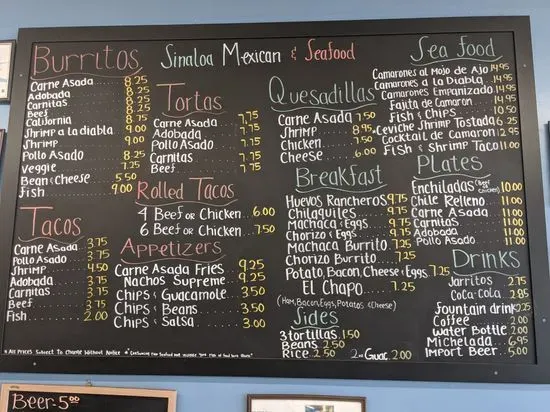 Sinaloa Mexican & Seafood
Burritos
Carne Asada 8.25
Adobada 8.25
Carnitas 8.25
Beef 8.25
California 8.75
Shrimp a la diabla 9.00
Shrimp 9.00
Pollo Asado 8.25
veggie 7.25
Bean & Cheese 5.50
fish 9.00
Tacos
Carne Asada 3.75
Pollo Asado 3.75
Shrimp 4.50
Adobada 3.75
Carnitas 3.75
Beef 3.75
Fish 2.00
Tortas
Carne Asada 7.75
Adobada 7.75
Pollo Asado 7.75
Carnitas 7.75
Beef 7.75
Rolled Tacos
4 Beef or Chicken 6.00
6 Beef or Chicken 7.50
Appetizers
Carne Asada Fries 9.25
Nachos Supreme 9.25
Chips & Guacamole 3.50
Chips & Beans 3.50
Chips & Salsa 3.00
Quesadillas
Carne Asada 7.50
Shrimp 8.95
Chicken 7.50
Cheese 6.00
Breakfast
Huevos Rancheros 9.75
Chilaquiles 9.75
Machaca & Eggs 9.75
Chorizo & Eggs 9.75
Machaca Burrito 7.25
Chorizo Burrito 7.25
Potato, Bacon, Cheese & Eggs 7.25
El Chapo 7.25
(Ham, Bacon, Eggs, Potatos & Cheese)
Sides
3 tortillas 1.50
Beans 2.50
Rice 2.50
2oz Guac. 2.00
Sea Food
Camarones al Mojo de Ajo 14.95
Camarones a la Diabla 14.95
Camarones Empanizado 14.95
Fajita de Camaron 14.95
Fish & Chips 10.50
Ceviche Shrimp Tostada 6.25
Cocktail de Camaron 12.95
Fish & Shrimp Taco 11.00
Plates
Enchiladas (Beef or Chicken) 10.00
Chile Relleno 11.00
Carne Asada 11.00
Carnitas 11.00
Adobada 11.00
Pollo Asado 11.00
Drinks
Jarritos 2.75
Coca-Cola 2.85
Fountain drink 2.25
Coffee 2.00
Water Bottle 2.00
Michelada 6.95
Import Beer 5.00
* All Prices Subject To Change Without Notice
Beer: 5.00